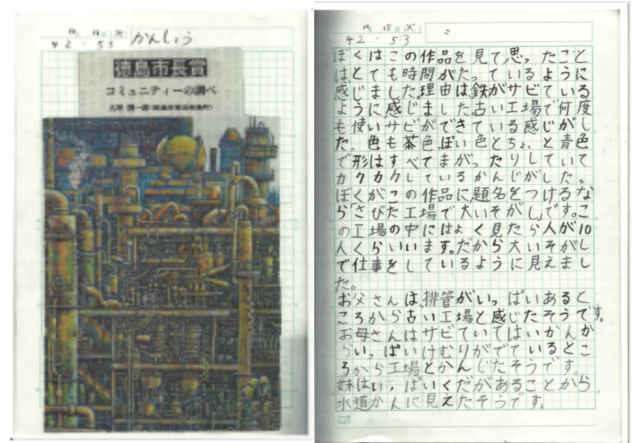 かんしょう
42 - 53
徳島市長賞
コミュニティーの調べ
42 - 53
ぼくはこの作品を見て思ったこと
はとても時間がたっているように
感じました。理由は鉄がサビている
ように感じました。古い工場で何度
も使いサビができている感じがし
た。色も茶色ぽい色とちょっと青色
で形はすべてまがったりしていて
カクカクしているかんじがした。
ぼくがこの作品に題名をつけるな
らさびた工場で大いそがしです。こ
の工場の中にはよく見たら人が10
人くらいいます。だから大いそがし
で仕事をしているように見えまし
た。
お父さんは排管がいっぱいあると
ころから古い工場と感じたそうです。
お母さんはサビていてはいかんか
らいっぱいけむりがでているとこ
ろから工場とかんじたそうです。
妹はいっぱいくだがあることから
水道かんに見えたそうです。